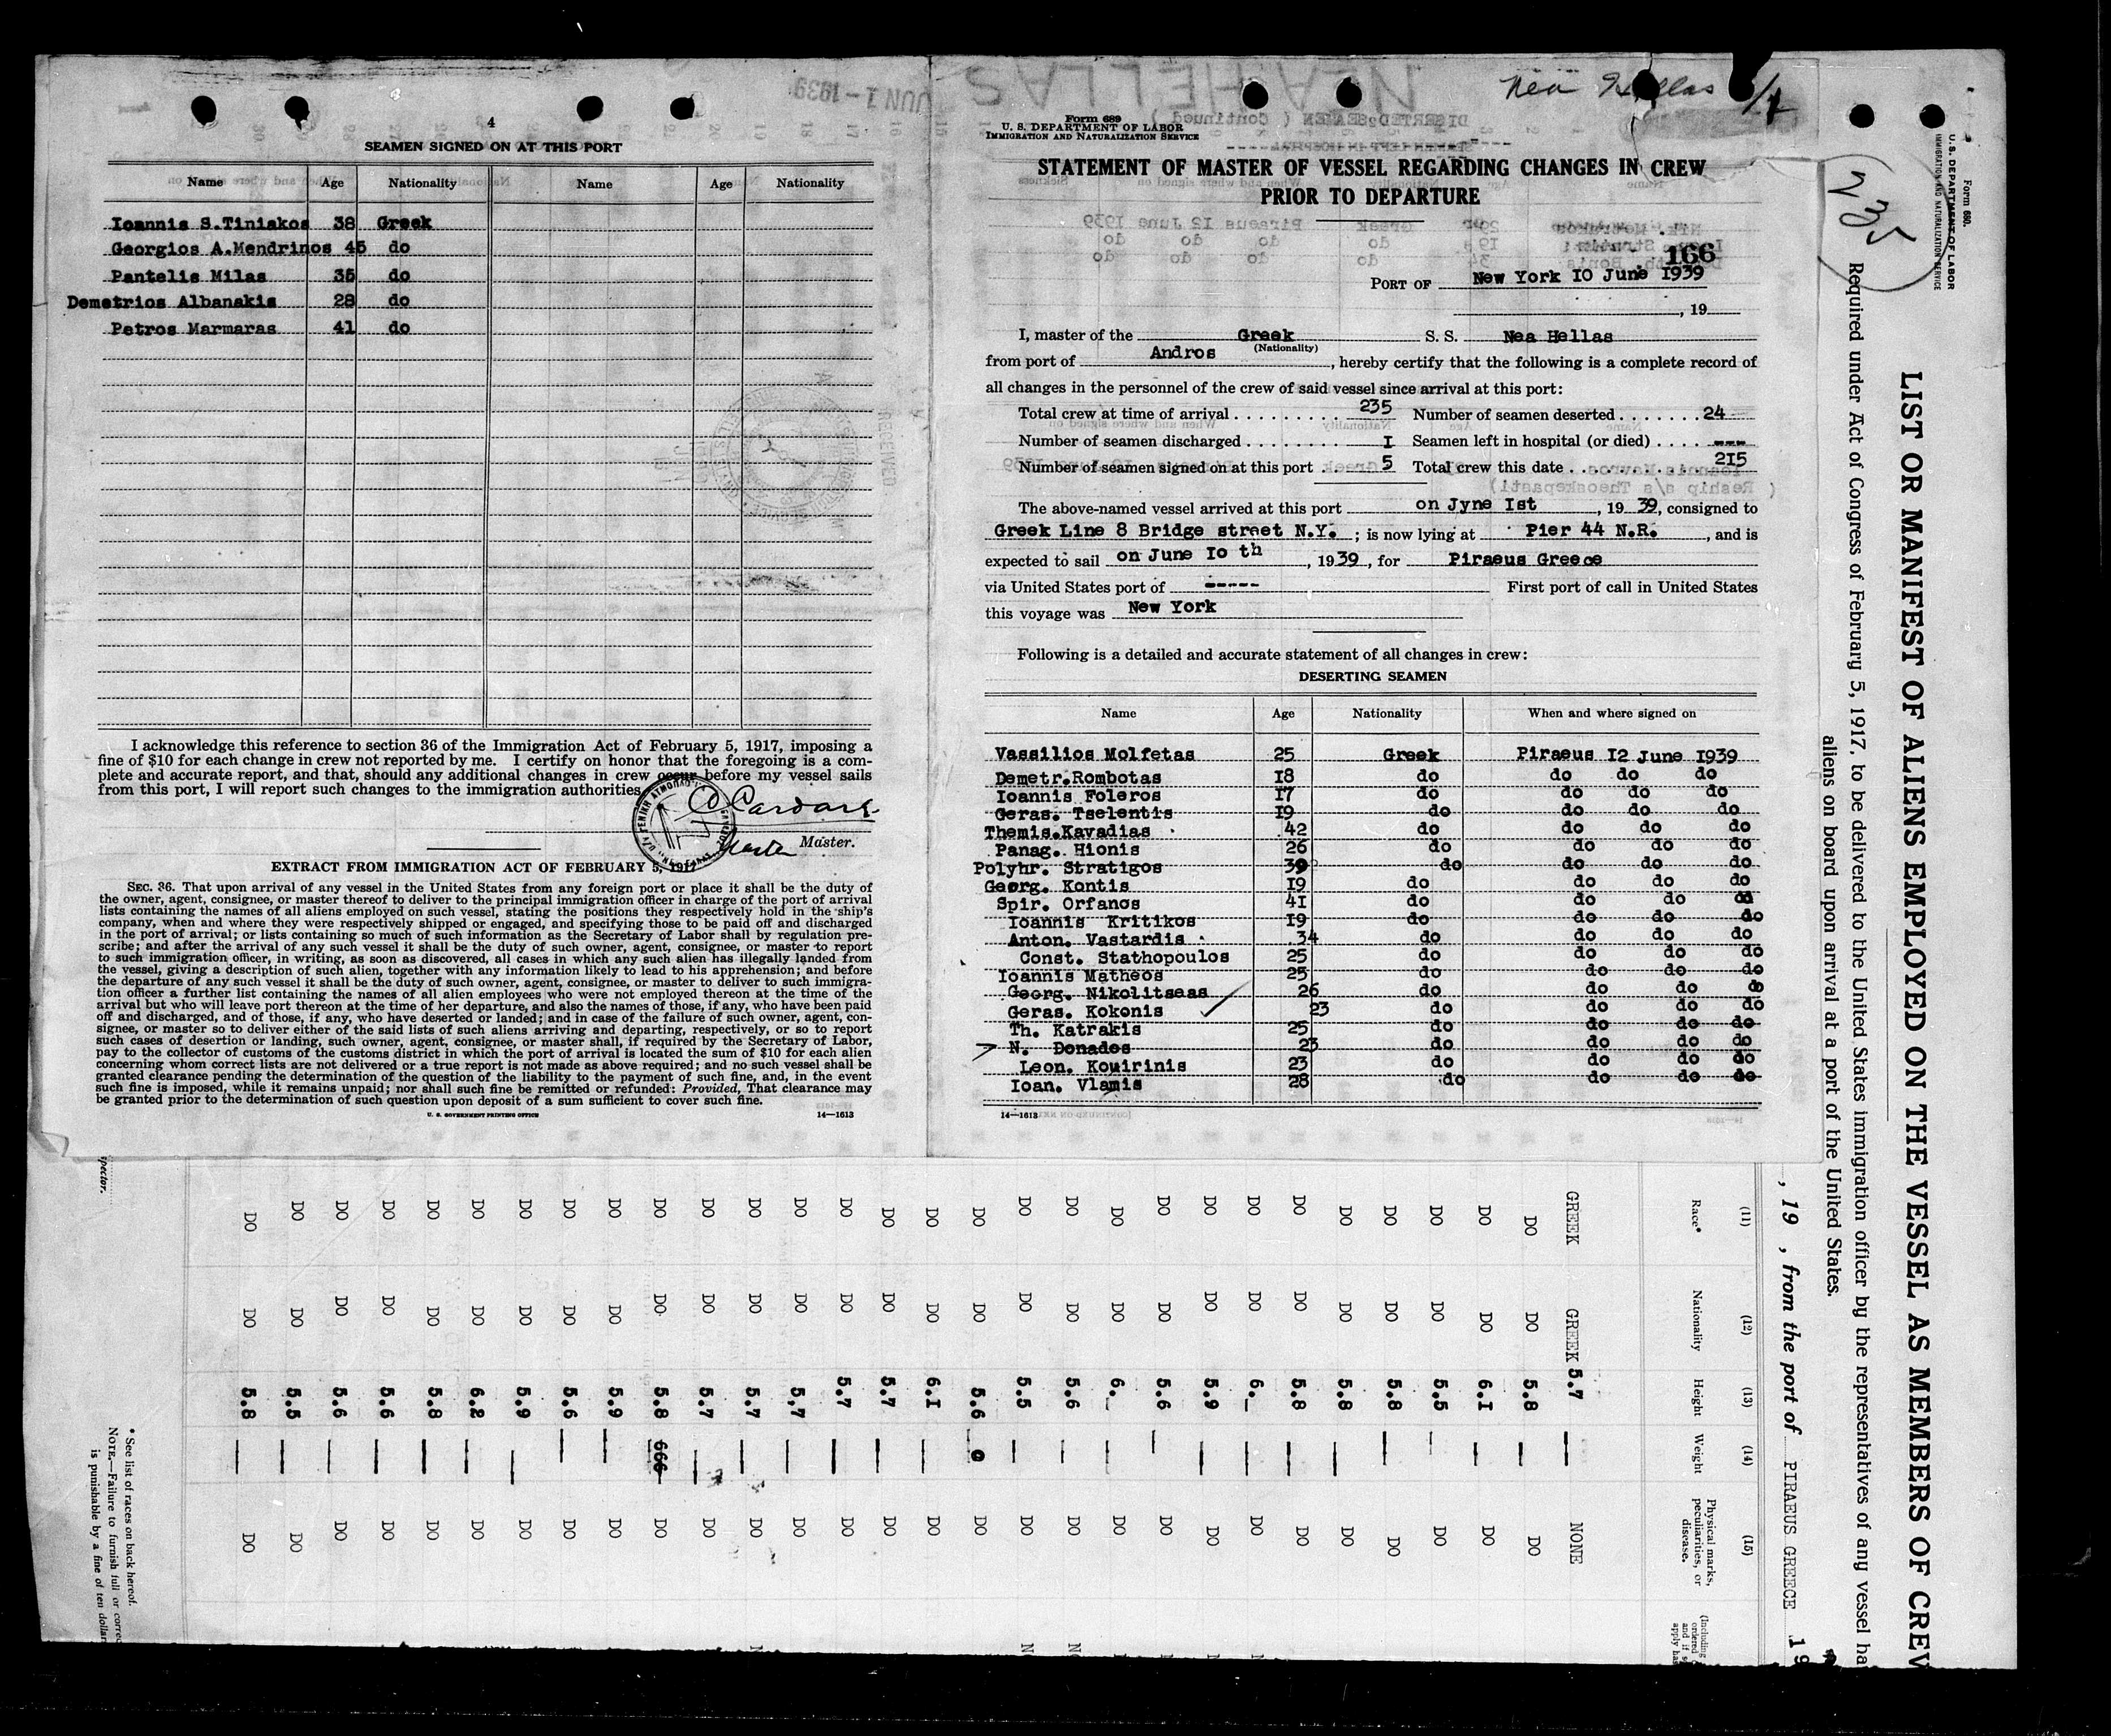 4
SEAMEN SIGNED ON AT THIS PORT
Name Age Nationality Name Age Nationality
Ioannis S.Tiniakos 38 Greek
Georgios A.Mendrinos 45 do
Pantelis Milas 35 do
Demetrios Albanakis 28 do
Petros Marmaras 41 do
I acknowledge this reference to section 36 of the Immigration Act of February 5, 1917, imposing a
fine of $10 for each change in crew not reported by me. I certify on honor that the foregoing is a com-
plete and accurate report, and that, should any additional changes in crew occur before my vessel sails
from this port, I will report such changes to the immigration authorities
Master.
EXTRACT FROM IMMIGRATION ACT OF FEBRUARY 5, 1917
SEC. 36. That upon arrival of any vessel in the United States from any foreign port or place it shall be the duty of
the owner, agent, consignee, or master thereof to deliver to the principal immigration officer in charge of the port of arrival
lists containing the names of all aliens employed on such vessel, stating the positions they respectively hold in the ship's
company, when and where they were respectively shipped or engaged, and specifying those to be paid off and discharged
in the port of arrival; or lists containing so much of such information as the Secretary of Labor shall by regulation pre-
scribe; and after the arrival of any such vessel it shall be the duty of such owner, agent, consignee, or master to report
to such immigration officer, in writing, as soon as discovered, all cases in which any such alien has illegally landed from
the vessel, giving a description of such alien, together with any information likely to lead to his apprehension; and before
the departure of any such vessel it shall be the duty of such owner, agent, consignee, or master to deliver to such immigra-
tion officer a further list containing the names of all alien employees who were not employed thereon at the time of the
arrival but who will leave port thereon at the time of her departure, and also the names of those, if any, who have been paid
off and discharged, and of those, if any, who have deserted or landed; and in case of the failure of such owner, agent, con-
signee, or master so to deliver either of the said lists of such aliens arriving and departing, respectively, or so to report
such cases of desertion or landing, such owner, agent, consignee, or master shall, if required by the Secretary of Labor,
pay to the collector of customs of the customs district in which the port of arrival is located the sum of $10 for each alien
concerning whom correct lists are not delivered or a true report is not made as above required; and no such vessel shall be
granted clearance pending the determination of the question of the liability to the payment of such fine, and, in the event
such fine is imposed, while it remains unpaid; nor shall such fine be remitted or refunded: Provided, That clearance may
be granted prior to the determination of such question upon deposit of a sum sufficient to cover such fine.
U. S. GOVERNMENT PRINTING OFFICE 14—1613
Nea Hellas
Form 689
U. S. DEPARTMENT OF LABOR
IMMIGRATION AND NATURALIZATION SERVICE
STATEMENT OF MASTER OF VESSEL REGARDING CHANGES IN CREW
PRIOR TO DEPARTURE
166
PORT OF New York IO June I939
, 19
I, master of the Greek S. S. Nea Hellas
(Nationality)
from port of Andros , hereby certify that the following is a complete record of
all changes in the personnel of the crew of said vessel since arrival at this port:
Total crew at time of arrival 235 Number of seamen deserted 24
Number of seamen discharged I Seamen left in hospital (or died) ---
Number of seamen signed on at this port 5 Total crew this date 2I5
The above-named vessel arrived at this port on Jyne Ist , 19 39, consigned to
Greek Line 8 Bridge street N.Y. ; is now lying at Pier 44 N.R. , and is
expected to sail on June Io th , 1939 , for Piraeus Greece
via United States port of ----- First port of call in United States
this voyage was New York
Following is a detailed and accurate statement of all changes in crew:
DESERTING SEAMEN
Name Age Nationality When and where signed on
Vassilios Molfetas 25 Greek Piraeus I2 June I939
Demetr.Rombotas I8 do do do do
Ioannis Foleros I7 do do do do
Geras. Tselentis I9 do do do do
Themis.Kavadias 42 do do do do
Panag. Hionis 26 do do do do
Polyhr. Stratigos 39 do do do do
Georg. Kontis I9 do do do do
Spir. Orfanos 4I do do do do
Ioannis Kritikos I9 do do do do
Anton. Vastardis 34 do do do do
Const. Stathopoulos 25 do do do do
Ioannis Matheos 25 do do do do
Georg. Nikolitseas 26 do do do do
Geras. Kokonis 23 do do do do
Th. Katrakis 25 do do do do
N. Donados 23 do do do do
Leon. Kouirinis 23 do do do do
Ioan. Vlamis 28 do do do do
14—1613
Form 680.
U. S. DEPARTMENT OF LABOR
IMMIGRATION AND NATURALIZATION SERVICE
235
LIST OR MANIFEST OF ALIENS EMPLOYED ON THE VESSEL AS MEMBERS OF CREW
Required under Act of Congress of February 5, 1917, to be delivered to the United States immigration officer by the representatives of any vessel ha
aliens on board upon arrival at a port of the United States.
, 19 , from the port of PIRAEUS GREECE 19
(11) (12) (13) (14) (15)
Race* Nationality Height Weight Physical marks, peculiarities, or disease.
GREEK GREEK 5.7 — NONE
DO DO 5.8 — DO
DO DO 6.I — DO
DO DO 5.5 — DO
DO DO 5.8 — DO
DO DO 5.8 — DO
DO DO 5.8 — DO
DO DO 6._ — DO
DO DO 5.9 — DO
DO DO 5.6 — DO
DO DO 6._ — DO
DO DO 5.6 — DO
DO DO 5.5 — DO
DO DO 5.6 DO
DO DO 6.I — DO
DO DO 5.7 — DO
DO DO 5.7 — DO
DO DO 5,7 — DO
DO DO 5.7 — DO
DO DO 5.7 — DO
DO DO 5.8 666 DO
DO DO 5.9 — DO
DO DO 5.6 — DO
DO DO 5.9 — DO
DO DO 6.2 — DO
DO DO 5.8 — DO
DO DO 5.6 — DO
DO DO 5.6 — DO
DO DO 5.5 — DO
DO DO 5.8 — DO
* See list of races on back hereof.
NOTE.—Failure to furnish full or correc
is punishable by a fine of ten dollar